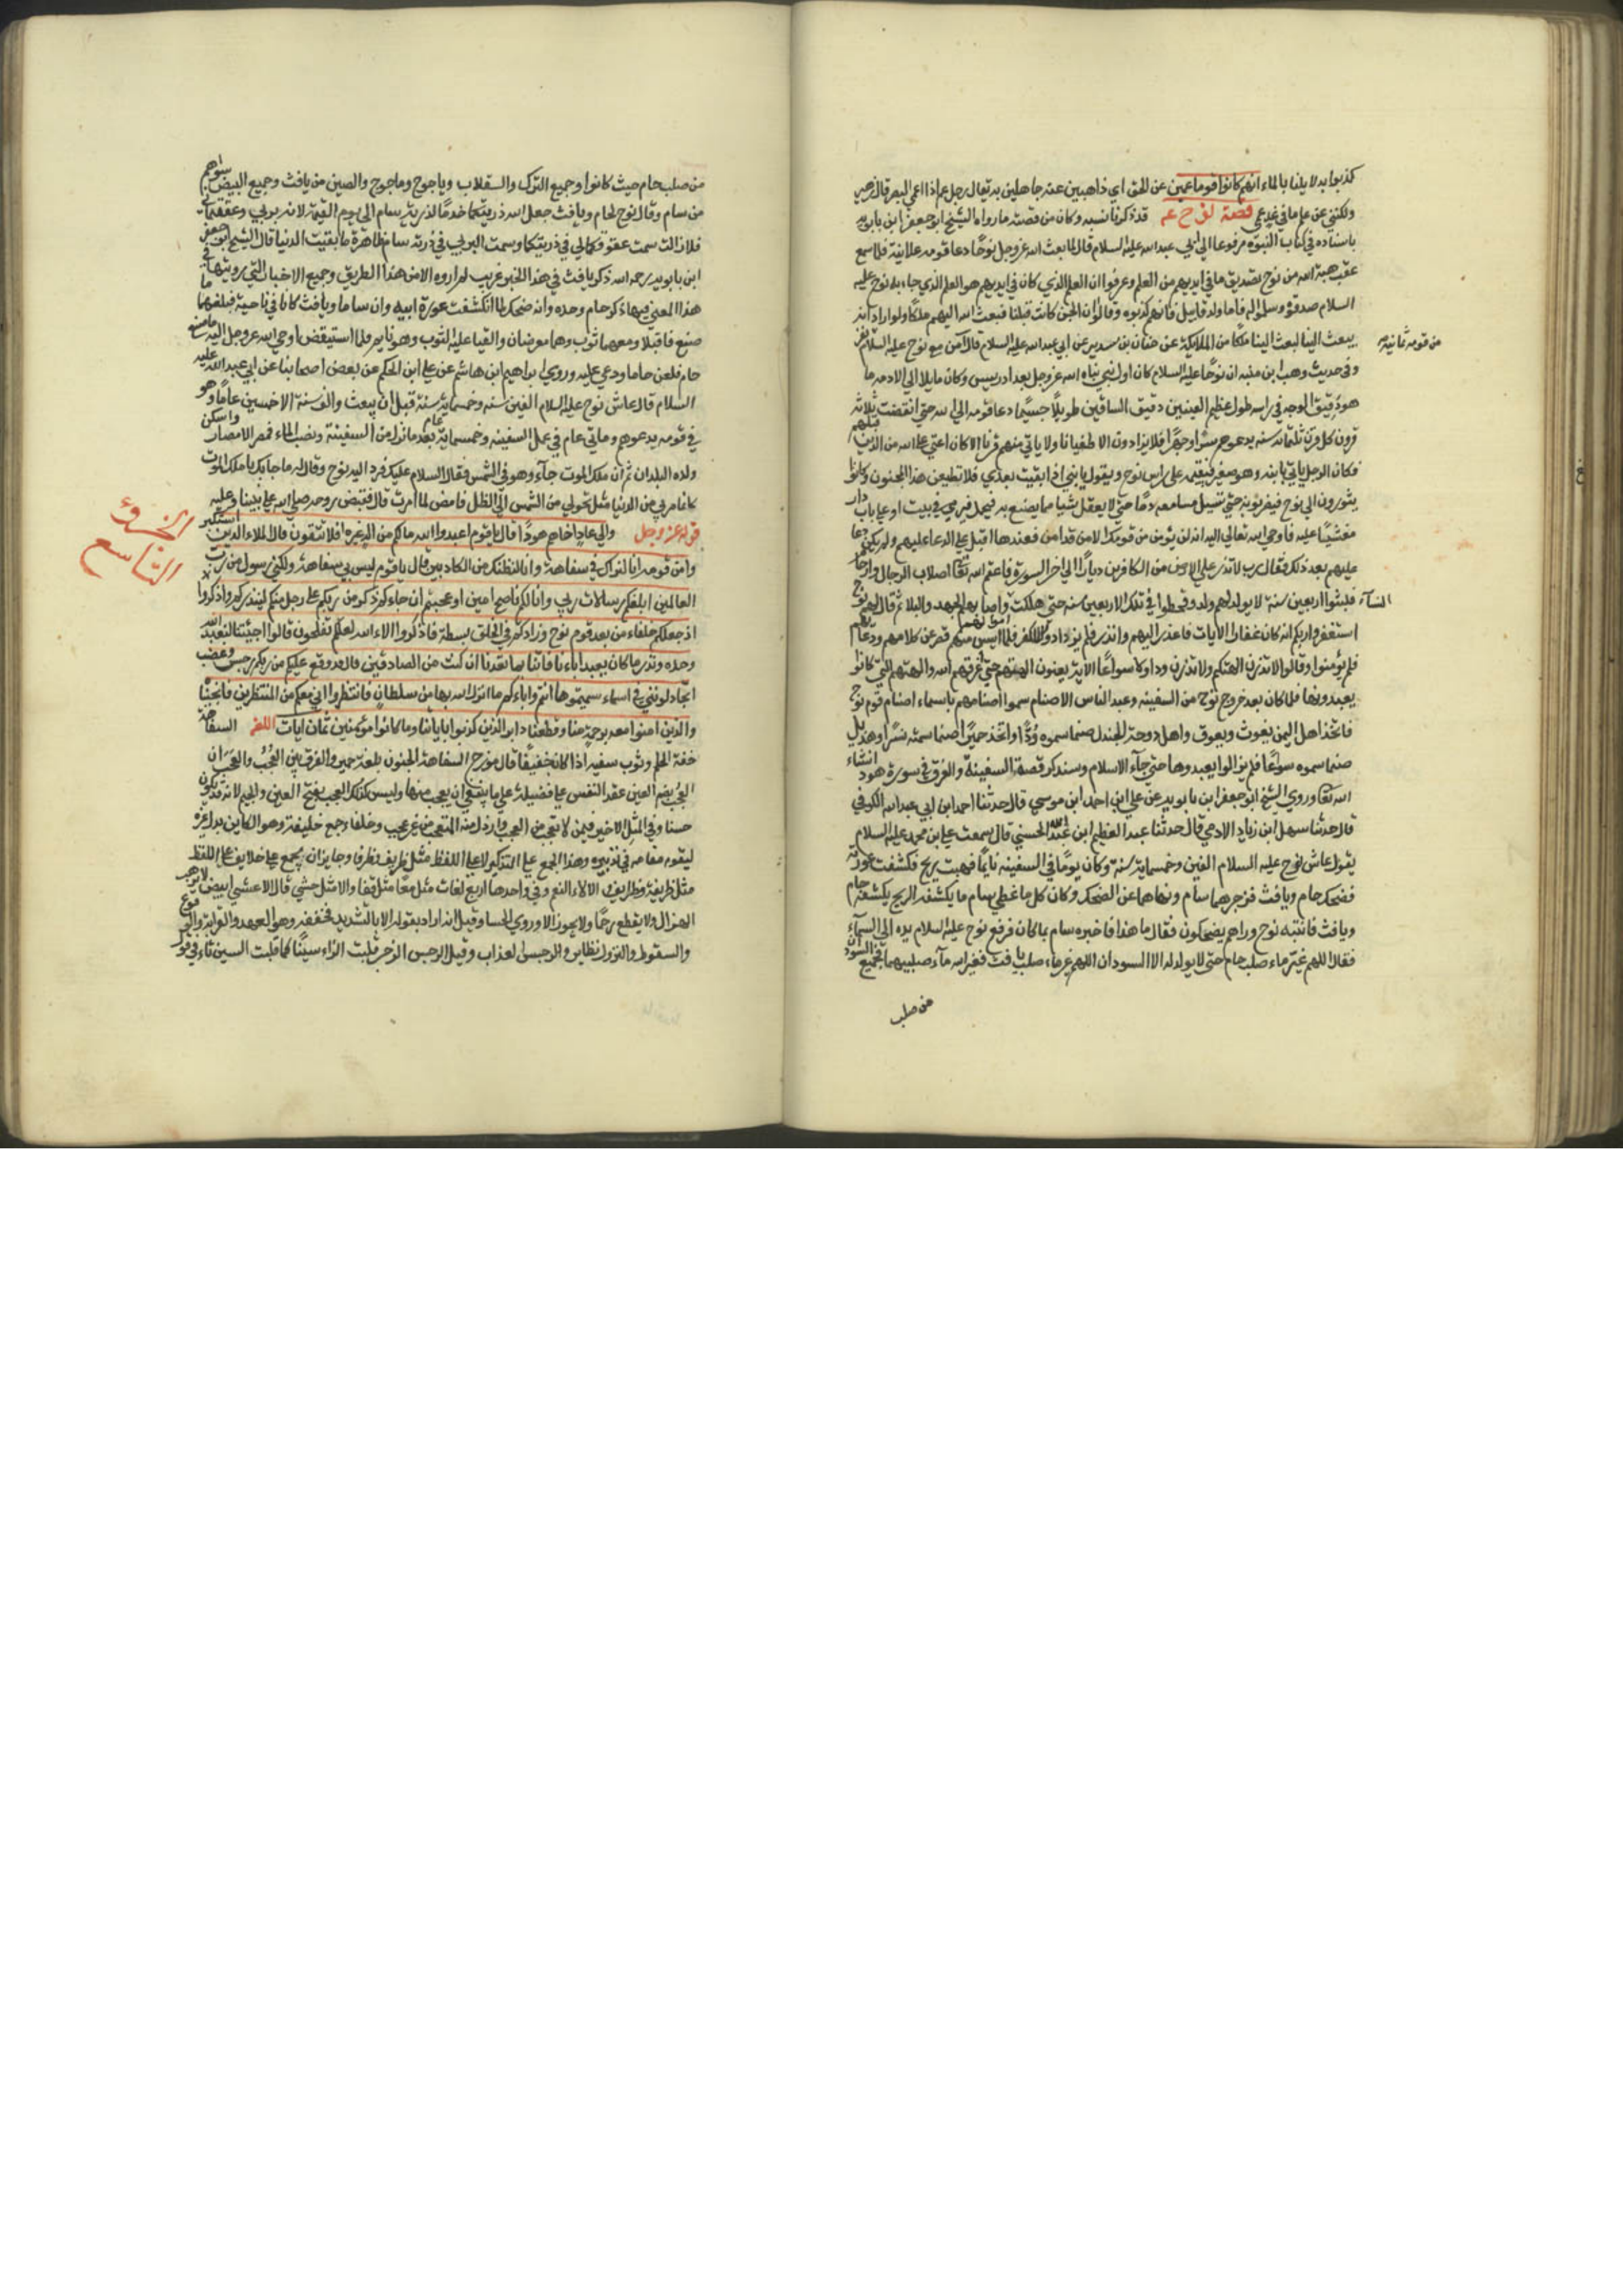 كذبوا بدلايلنا بالماء انهم كانوا قوما عمين عن الحق اي ذاهبين عنه جاهلين به يقال رجل عم اذا اعمي البصر قال زهير
ولكنني عن علم ما في غد عمي قصة نوح عم قد ذكرنا نسبه وكان من قصته ما رواه الشيخ ابو جعفر ابن بابويه
باسناده في كتاب النبوة مرفوعا الي ابي عبد الله عليه السلام قال لما بعث الله عز وجل نوحا دعا قومه علانية فلما سمع
عقب هبة الله من نوح تصديق ما في ايديهم من العلم وعرفوا ان العلم الذي كان في ايديهم هو العلم الذي جاء به نوح عليه
السلام صدقوه وسلموا له فاما ولد قابيل فانهم كذبوه وقالوا ان الجن كانت قبلنا فبعث الله اليهم ملكا ولو اراد ان
يبعث الينا لبعث الينا ملكا من الملايكة عن حنان بن سدير عن ابي عبد الله عليه السلام قال آمن مع نوح عليه السلام
من قومه ثمانية نفر
وفي حديث وهب ابن منبه ان نوحا عليه السلام كان اول نبي نباه الله عز وجل بعد ادريس وكان مايلا الي الادمه ما
هو دقيق الوجه في راسه طول عظيم العينين دقيق الساقين طويلا جسيما دعا قومه الي الله حتي انقضت ثلاثة
قرون كل قرن ثلثمائة سنه يدعوهم سرا وجهرا فلا يزدادون الا طغيانا ولا ياتي منهم قرنا الا كان اعتي علي الله من الذين قبلهم
فكان الرجل ياتي بابنه وهو صغير فيقيمه علي راس نوح ويقول يا بني ان بقيت بعدي فلا تطيعن هذا المجنون وكانوا
يثورون الي نوح فيضربونه حتي تسيل مسامعه دما حتي لا يعقل شيا مما يصنع به فيحمل فيرمي في بيت او علي باب دار
مغشيا عليه فاوحي الله تعالي اليه انه لن يؤمن من قومك الا من قد امن فعندها اقبل علي الدعا عليهم ولم يكن دعا
عليهم بعد ذلك فقال رب لا تذر علي الارض من الكافرين ديارا الي اخر السورة فاعقم الله تعا اصلاب الرجال وارحام
النسآء فلبثوا اربعين سنة لا يولد لهم ولد وقحطوا في تلك الاربعين سنه حتي هلكت اموالهم واصابهم الجهد والبلاء ثم قال لهم نوح
استغفروا ربكم انه كان غفارا الايات فاعذر اليهم وانذر فلم يزدادوا الا كفر فلما ايس منهم قصر عن كلامهم ودعا
فلم يؤمنوا وقالوا لا تذرن الهتكم ولا تذرن ودا ولا سواعا الاية يعنون الهتهم حتي غرقهم الله والهتهم التي كانوا
يعبدونها فلما كان بعد خروج نوح من السفينه وعبد الناس الاصنام سموا اصنامهم باسماء اصنام قوم نوح
فاتخذ اهل اليمن يغوث ويعوق واهل دوحة الجندل صنما سموه ودا واتخذ حمير اصنما سمته نسرا وهذيل
صنما سموه سواعا فلم يزالوا يعبدوها حتي جآء الاسلام وسنذكر قصة السفينة والغرق في سورة هود انشاء
الله تعا وروي الشيخ ابو جعفر ابن بابويه عن علي ابن احمد ابن موسي قال حدثنا احمد ابن ابي عبد الله الكوفي
قال حدثنا سهل ابن زياد الادمي قال حدثنا عبد العظيم ابن عبد الله الحسني قال سمعت علي بن محمد عليه السلام
يقول عاش نوح عليه السلام الفين وخمسماية سنة وكان يوما في السفينه نايما فهبت ريح فكشفت عورته
فضحك حام ويافث فزجرهما سام ونهاهما عن الضحك وكان كل ما غطي سام ما يكشفه الريح يكشفه حام
ويافث فانتبه نوح وراهم يضحكون فقال ما هذا فاخبره سام بما كان فرفع نوح عليه السلام يده الي السمآء
فقال اللهم غير ماء صلب حام حتي لا يولد له الا السودان اللهم غير ماء صلب يافث فغير الله مآء صلبيهما فجميع السودان
من صلب
من صلب حام حيث كانوا وجميع الترك والسقلاب وياجوج وماجوج والصين من يافث وجميع البيض سواهم
من سام وقال نوح لحام ويافث جعل الله ذريتكما خدما لذرية سام الي يوم القيمة لانه بر بي وعققتماني
فلا زالت سمت عقوقكما لي في ذريتكما وسمت البر لي في ذرية سام ظاهرة ما بقيت الدنيا قال الشيخ ابو جعفر
ابن بابويه رحمه الله ذكر يافث في هذا الخبر غريب لم اروه الا من هذا الطريق وجميع الاخبار التي رويتها في
هذا المعني فيها ذكر حام وحده وانه ضحك لما انكشفت عورة ابيه وان ساما ويافث كانا في ناحية فبلغهما ما
صنع فاقبلا ومعهما ثوب وهما معرضان والقيا عليه الثوب وهو نايم فلما استيقض اوحي الله عز وجل اليه ما صنع
حام فلعن حاما ودعي عليه وروي ابراهيم ابن هاشم عن علي ابن الحكم عن بعض اصحابنا عن ابي عبد الله عليه
السلام قال عاش نوح عليه السلام الفين سنه وخمسماية سنة قبل ان يبعث والف سنة الا خمسين عاما وهو
في قومه يدعوهم ومأتي عام في عمل السفينه وخمسماية عام بعد ما نزل من السفينة ونضب الماء فمصر الامصار واسكن
ولده البلدان ثم ان ملك الموت جآء وهو في الشمس فقال السلام عليك فرد اليه نوح وقال له ما جا بك يا ملك الموت
كلما مر بي من الدنيا مثل تحولي من الشمس الي الظل فامض لما امرت قال فقبض روحه صلي الله علي نبينا وعليه
قوله عز وجل والي عاد اخاهم هودا قال يا قوم اعبدوا الله ما لكم من اله غيره افلا تتقون قال الملاء الذين استكبر
الجزؤ التاسع
وا من قومه انا لنراك في سفاهة وانا لنظنك من الكاذبين قال يا قوم ليس بي سفاهة ولكني رسول من رب
العالمين ابلغكم رسالات ربي وانا لكم ناصح امين اوعجبتم ان جاءكم ذكر من ربكم علي رجل منكم لينذركم واذكروا
اذ جعلكم خلفاء من بعد قوم نوح وزادكم في الخلق بسطة فاذكروا الاء الله لعلكم تفلحون قالوا اجيتنا لنعبد الله
وحده ونذر ما كان يعبد اباءنا فاتنا بما تعدنا ان كنت من الصادقين قال قد وقع عليكم من ربكم رجس وغضب
اتجادلونني في اسماء سميتموها انتم واباءكم ما انزل الله بها من سلطان فانتظروا اني معكم من المنتظرين فانجيناه
والذين امنوا معه برحمة منا وقطعنا دابر الذين كذبوا باياتنا وما كانوا مؤمنين ثمان ايات اللغه السفاهة
خفة الحلم وثوب سفيه اذا كان خفيفا قال مؤرج السفاهة الجنون بلغة حمير والفرق بين العجب والعجب ان
العجب بضم العين عقد النفس علي فضيلة علي ما ينبغي ان يعجب منها وليس كذلك العجب بفتح العين والجيم لانه قد يكون
حسنا وفي المثل لا خير فيمن لا يتعجب من العجب وارذل منه المتعجب من غير عجب وخلفاء جمع خليفة وهو الكاين بدل غيره
ليقوم مقامه في تدبيره وهذا الجمع علي التذكير لا علي اللفظ مثل ظريف وظرفا وجايز ان يجمع علي خلايف علي اللفظ
مثل ظريفة وظرايف والالاء النعم وفي واحدها اربع لغات مثل معا مثل قفا والا مثل حشي قال الاعشي ابيض لا يرهب
الهزال ولا يقطع رحما ولا يخون الا وروي الي حسا وقيل انه اراد بقوله الا بالتشديد فخففه وهو العهد والقرابة والوقوع
والسقوط والنزول نظاير والرجس العذاب وقيل الرجس الرجز قلبت الزاء سينا كما قلبت السين تاء في قول